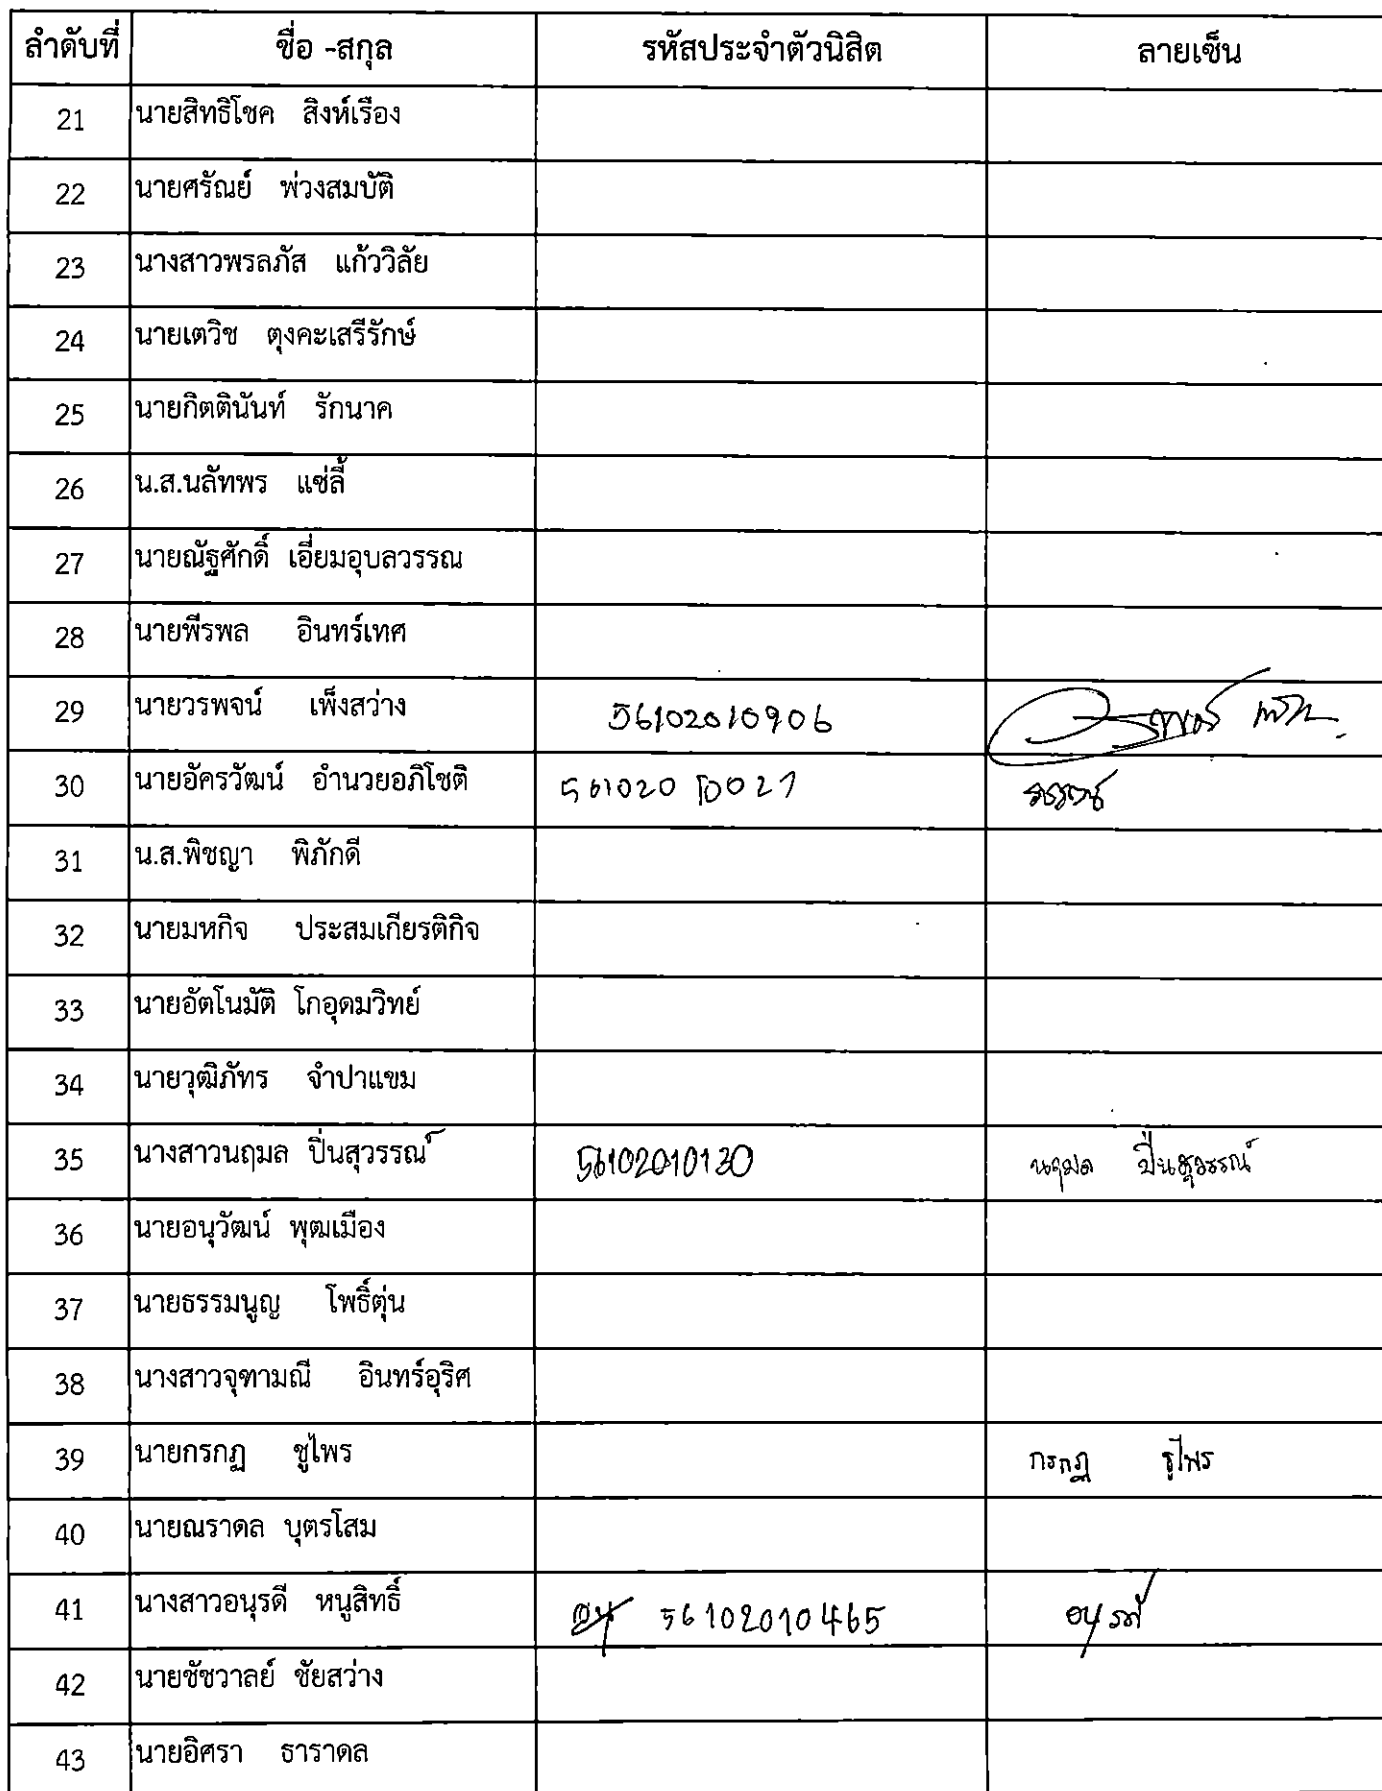 ลำดับที่ ชื่อ -สกุล รหัสประจำตัวนิสิต ลายเซ็น
21 นายสิทธิโชค สิงห์เรือง
22 นายศรัณย์ พ่วงสมบัติ
23 นางสาวพรลภัส แก้ววิลัย
24 นายเตวิช ตุงคะเสรีรักษ์
25 นายกิตตินันท์ รักนาค
26 น.ส.นลัทพร แซ่ลี้
27 นายณัฐศักดิ์ เอี่ยมอุบลวรรณ
28 นายพีรพล อินทร์เทศ
29 นายวรพจน์ เพ็งสว่าง 56102010906
30 นายอัครวัฒน์ อำนวยอภิโชติ 56102010021
31 น.ส.พิชญา พิภักดี
32 นายมหกิจ ประสมเกียรติกิจ
33 นายอัตโนมัติ โกอุดมวิทย์
34 นายวุฒิภัทร จำปาแขม
35 นางสาวนฤมล ปิ่นสุวรรณ์ 56102010130 นฤมล ปิ่นสุวรรณ์
36 นายอนุวัฒน์ พุฒเมือง
37 นายธรรมนูญ โพธิ์ตุ่น
38 นางสาวจุฑามณี อินทร์อุริศ
39 นายกรกฏ ชูไพร กรกฏ ชูไพร
40 นายณราดล บุตรโสม
41 นางสาวอนุรดี หนูสิทธิ์ 56102010465 อนุรดี
42 นายชัชวาลย์ ชัยสว่าง
43 นายอิศรา ธาราดล